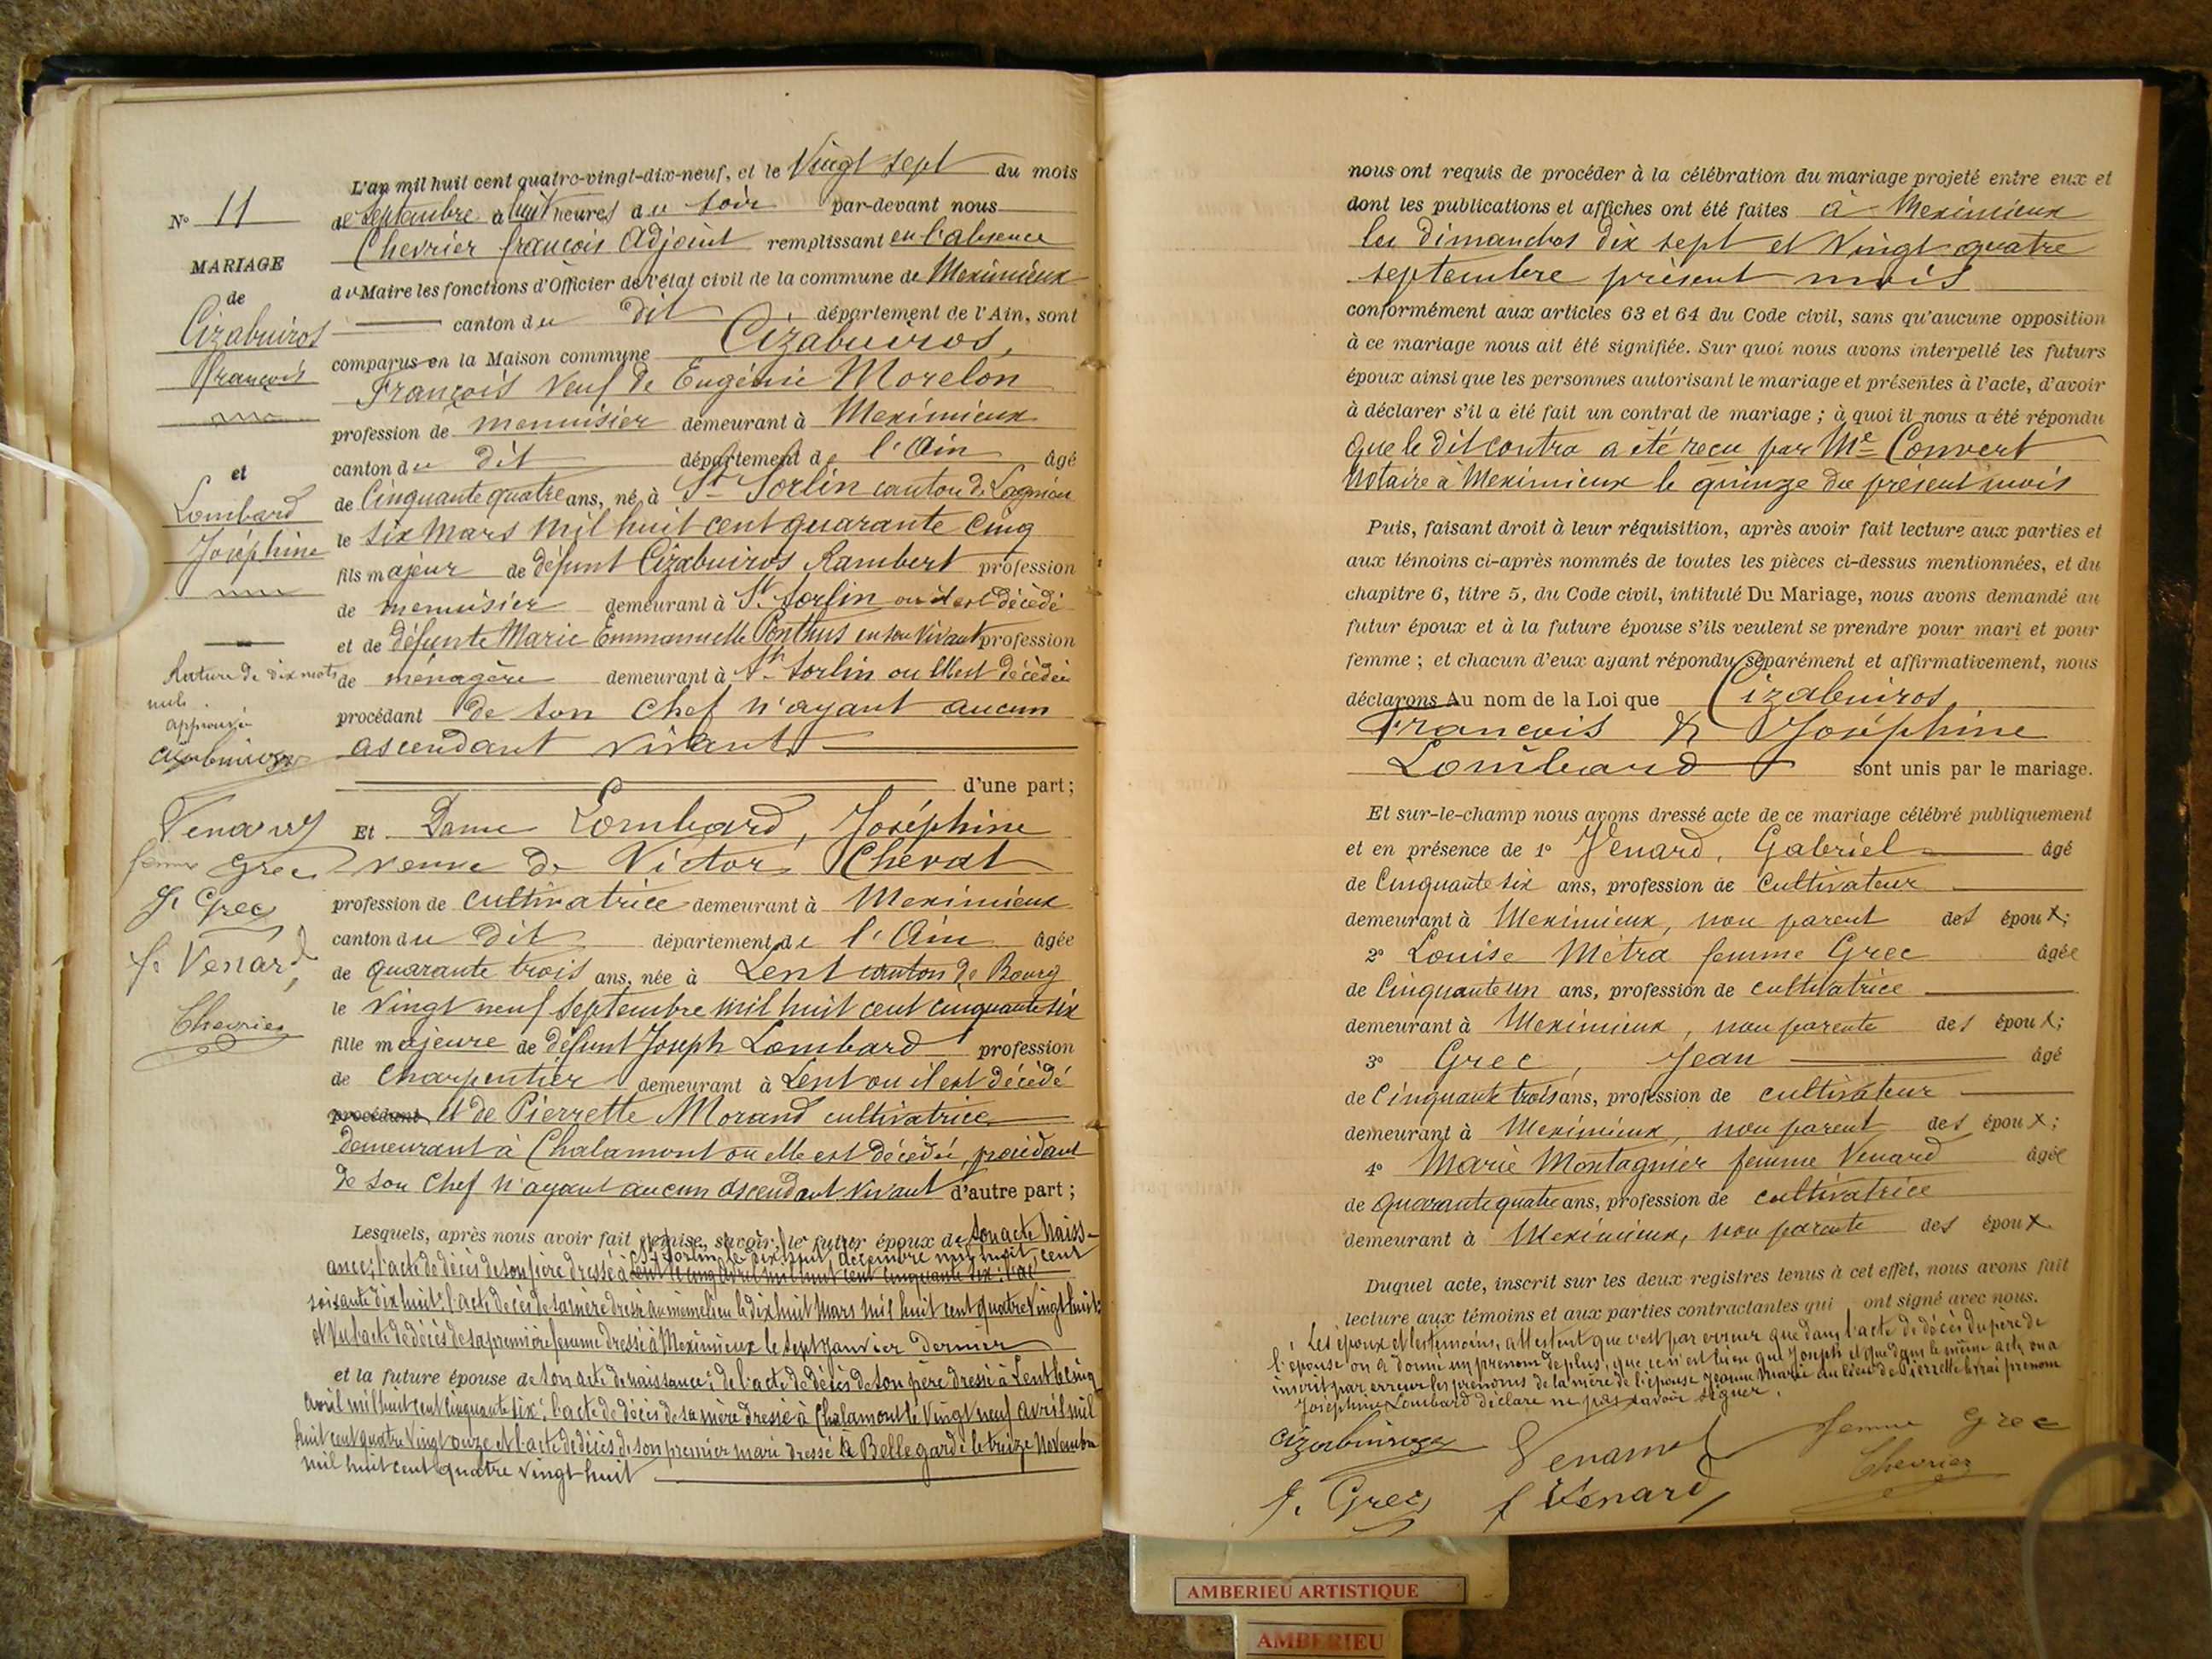 N° 11
MARIAGE
de
Cizabuiros
François
et
Lombard
Joséphine
Rature de dix mots
nuls
approuvée
Cizabuiros
Venard
femme Grec
J. Grec
f. Venard
Chevrier
L'an mil huit cent quatre-vingt-dix-neuf, et le Vingt sept du mois
de Septembre à huit heures du soir par-devant nous
Chevrier françois Adjoint remplissant en l'absence
du Maire les fonctions d'Officier de l'état civil de la commune de Meximieux
canton du dit département de l'Ain, sont
comparus en la Maison commune Cizabuiros,
François Veuf de Eugénie Morelon
profession de menuisier demeurant à Meximieux
canton du dit département de l'Ain âgé
de Cinquante quatre ans, né à St Sorlin canton de Lagnieu
le six Mars mil huit cent quarante cinq
fils majeur de défunt Cizabuiros Rambert profession
de menuisier demeurant à St Sorlin ou il est décédé
et de défunte Marie Emmanuelle Ponthus en son Vivant profession
de ménagère demeurant à St Sorlin ou elle est décédée
procédant de son chef n'ayant aucun
ascendant vivant
d'une part;
Et Dame Lombard, Joséphine
veuve de Victor Chevat
profession de cultivatrice demeurant à Meximieux
canton du dit département de l'Ain âgée
de quarante trois ans, née à Lent canton de Bourg
le Vingt neuf Septembre mil huit cent cinquante six
fille majeure de défunt Joseph Lombard profession
de Charpentier demeurant à Lent ou il est décédé
procédant et de Pierrette Morand cultivatrice
demeurant à Chalamont où elle est décédée, procédant
de son chef n'ayant aucun ascendant vivant d'autre part;
Lesquels, après nous avoir fait remise, savoir, le futur époux de son acte naiss-
St Sorlin le dix huit décembre mil huit cent
ance; l'acte de décès de son père dressé à Lent le cinq avril mil huit cent cinquante six; l'ac
soixante dix huit; l'acte décès de sa mère dressé au même lieu le dix huit Mars mil huit cent quatre vingt huit;
et vu l'acte de décès de sa première femme dressé à Meximieux le sept Janvier dernier
et la future épouse de son acte de naissance; de l'acte de décès de son père dressé à Lent le cinq
avril mil huit cent cinquante six; l'acte de décès de sa mère dressé à Chalamont le Vingt neuf avril mil
huit cent quatre vingt onze et l'acte de décès de son premier mari dressé à Bellegarde le treize Novembre
mil huit cent quatre vingt huit
nous ont requis de procéder à la célébration du mariage projeté entre eux et
dont les publications et affiches ont été faites à Meximieux
les dimanches dix sept et Vingt quatre
septembre présent mois
conformément aux articles 63 et 64 du Code civil, sans qu'aucune opposition
à ce mariage nous ait été signifiée. Sur quoi nous avons interpellé les futurs
époux ainsi que les personnes autorisant le mariage et présentes à l'acte, d'avoir
à déclarer s'il a été fait un contrat de mariage; à quoi il nous a été répondu
que le dit contra a été recu par Me Convert
Notaire à Meximieux le quinze du présent mois
Puis, faisant droit à leur réquisition, après avoir fait lecture aux parties et
aux témoins ci-après nommés de toutes les pièces ci-dessus mentionnées, et du
chapitre 6, titre 5, du Code civil, intitulé Du Mariage, nous avons demandé au
futur époux et à la future épouse s'ils veulent se prendre pour mari et pour
femme; et chacun d'eux ayant répondu séparément et affirmativement, nous
déclarons Au nom de la Loi que Cizabuiros
François & Joséphine
Lombard sont unis par le mariage.
Et sur-le-champ nous avons dressé acte de ce mariage célébré publiquement
et en présence de 1° Venard, Gabriel âgé
de Cinquante six ans, profession de Cultivateur
demeurant à Meximieux, non parent des époux;
2° Louise Métra femme Grec âgée
de Cinquante un ans, profession de cultivatrice
demeurant à Meximieux, non parente des époux;
3° Grec, Jean âgé
de Cinquante trois ans, profession de cultivateur
demeurant à Meximieux, non parent des époux;
4° Marie Montagnier femme Venard âgée
de Quarante quatre ans, profession de cultivatrice
demeurant à Meximieux, non parente des époux.
Duquel acte, inscrit sur les deux registres tenus à cet effet, nous avons fait
lecture aux témoins et aux parties contractantes qui ont signé avec nous.
Les époux et les temoins, attestent que c'est par erreur que dans l'acte de décès du père de
l'épouse on a donné un prenom de plus, que ce n'est bien que Joseph et que dans le même acte on a
inscrit par erreur les prenoms de la mère de l'épouse Jeanne Marie au lieu de Pierrette le vrai prenom
Joséphine Lombard déclare ne pas savoir signer.
Cizabuiros Venard femme Grec
J. Grec f Venard Chevrier
AMBERIEU ARTISTIQUE
AMBERIEU